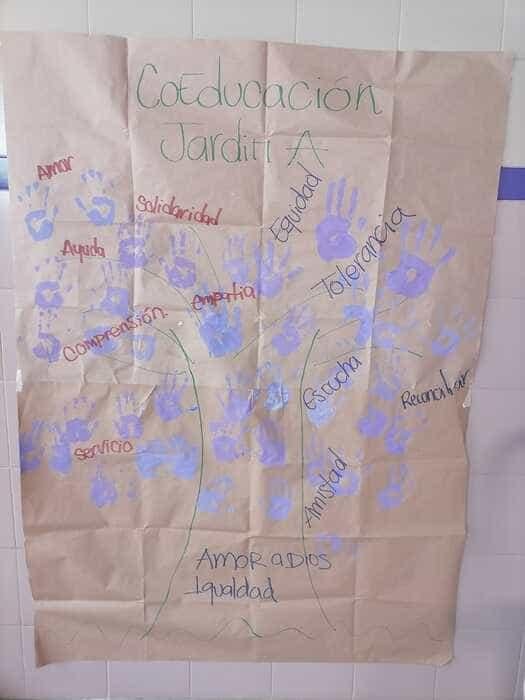 CoEducación
Jardín A
Amor
Solidaridad
Equidad
Ayuda
Tolerancia
empatia
Comprensión.
Escucha
Reconciliar
Servicio
Amistad
AMOR a DIOS
Igualdad